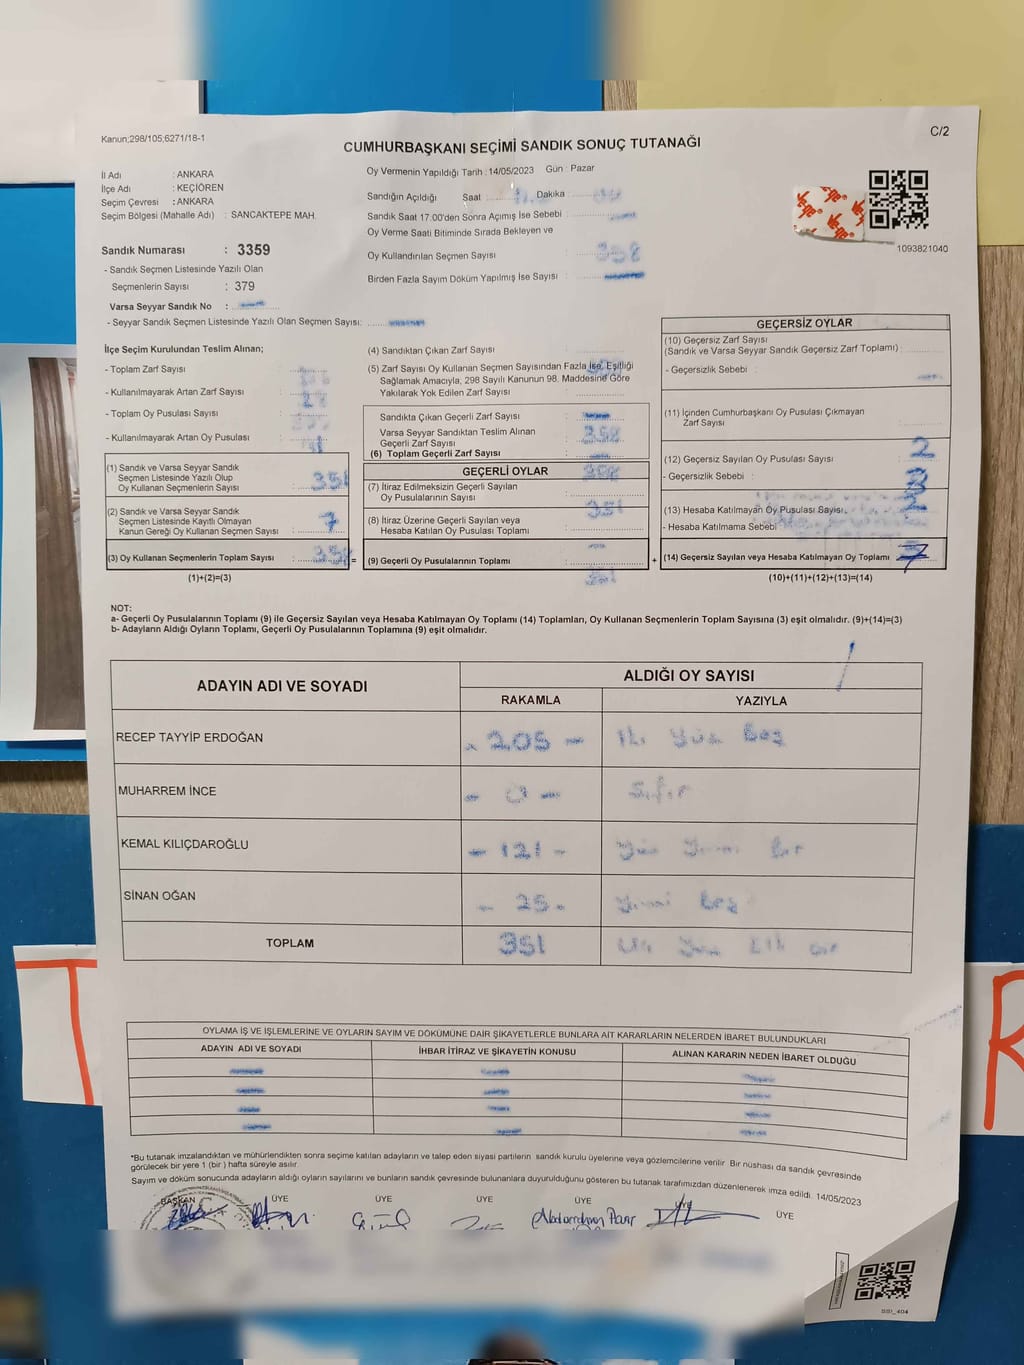 Kanun;298/105;6271/18-1
C/2
CUMHURBAŞKANI SEÇİMİ SANDIK SONUÇ TUTANAĞI
İl Adı : ANKARA
İlçe Adı : KEÇİÖREN
Seçim Çevresi : ANKARA
Seçim Bölgesi (Mahalle Adı) : SANCAKTEPE MAH.
Sandık Numarası : 3359
- Sandık Seçmen Listesinde Yazılı Olan
Seçmenlerin Sayısı : 379
Varsa Seyyar Sandık No :
- Seyyar Sandık Seçmen Listesinde Yazılı Olan Seçmen Sayısı:
Oy Vermenin Yapıldığı Tarih : 14/05/2023 Gün : Pazar
Sandığın Açıldığı Saat : Dakika :
Sandık Saat 17.00'den Sonra Açımış İse Sebebi :
Oy Verme Saati Bitiminde Sırada Bekleyen ve
Oy Kullandırılan Seçmen Sayısı : 358
Birden Fazla Sayım Döküm Yapılmış İse Sayısı :
1093821040
İlçe Seçim Kurulundan Teslim Alınan;
- Toplam Zarf Sayısı :
- Kullanılmayarak Artan Zarf Sayısı :
- Toplam Oy Pusulası Sayısı :
- Kullanılmayarak Artan Oy Pusulası :
(1) Sandık ve Varsa Seyyar Sandık
Seçmen Listesinde Yazılı Olup
Oy Kullanan Seçmenlerin Sayısı : 351
(2) Sandık ve Varsa Seyyar Sandık
Seçmen Listesinde Kayıtlı Olmayan
Kanun Gereği Oy Kullanan Seçmen Sayısı : 7
(3) Oy Kullanan Seçmenlerin Toplam Sayısı : 358 =
(1)+(2)=(3)
(4) Sandıktan Çıkan Zarf Sayısı :
(5) Zarf Sayısı Oy Kullanan Seçmen Sayısından Fazla İse, Eşitliği
Sağlamak Amacıyla, 298 Sayılı Kanunun 98. Maddesine Göre
Yakılarak Yok Edilen Zarf Sayısı :
Sandıkta Çıkan Geçerli Zarf Sayısı :
Varsa Seyyar Sandıktan Teslim Alınan
Geçerli Zarf Sayısı : 358
(6) Toplam Geçerli Zarf Sayısı :
GEÇERLİ OYLAR 358
(7) İtiraz Edilmeksizin Geçerli Sayılan
Oy Pusulalarının Sayısı :
351
(8) İtiraz Üzerine Geçerli Sayılan veya
Hesaba Katılan Oy Pusulası Toplamı :
(9) Geçerli Oy Pusulalarının Toplamı : +
351
GEÇERSİZ OYLAR
(10) Geçersiz Zarf Sayısı
(Sandık ve Varsa Seyyar Sandık Geçersiz Zarf Toplamı) :
- Geçersizlik Sebebi :
(11) İçinden Cumhurbaşkanı Oy Pusulası Çıkmayan
Zarf Sayısı :
2
(12) Geçersiz Sayılan Oy Pusulası Sayısı :
- Geçersizlik Sebebi : 3
(13) Hesaba Katılmayan Oy Pusulası Sayısı : 2
- Hesaba Katılmama Sebebi :
(14) Geçersiz Sayılan veya Hesaba Katılmayan Oy Toplamı : 7
(10)+(11)+(12)+(13)=(14)
NOT:
a- Geçerli Oy Pusulalarının Toplamı (9) ile Geçersiz Sayılan veya Hesaba Katılmayan Oy Toplamı (14) Toplamları, Oy Kullanan Seçmenlerin Toplam Sayısına (3) eşit olmalıdır. (9)+(14)=(3)
b- Adayların Aldığı Oyların Toplamı, Geçerli Oy Pusulalarının Toplamına (9) eşit olmalıdır.
ADAYIN ADI VE SOYADI ALDIĞI OY SAYISI
RAKAMLA YAZIYLA
RECEP TAYYİP ERDOĞAN - 205 - İki Yüz Beş
MUHARREM İNCE - 0 - Sıfır
KEMAL KILIÇDAROĞLU - 121 - Yüz Yirmi Bir
SİNAN OĞAN - 25 - Yirmi Beş
TOPLAM 351 Üç Yüz Elli Bir
OYLAMA İŞ VE İŞLEMLERİNE VE OYLARIN SAYIM VE DÖKÜMÜNE DAİR ŞİKAYETLERLE BUNLARA AİT KARARLARIN NELERDEN İBARET BULUNDUKLARI
ADAYIN ADI VE SOYADI İHBAR İTİRAZ VE ŞİKAYETİN KONUSU ALINAN KARARIN NEDEN İBARET OLDUĞU
*Bu tutanak imzalandıktan ve mühürlendikten sonra seçime katılan adayların ve talep eden siyasi partilerin sandık kurulu üyelerine veya gözlemcilerine verilir. Bir nüshası da sandık çevresinde
görülecek bir yere 1 (bir ) hafta süreyle asılır.
Sayım ve döküm sonucunda adayların aldığı oyların sayılarını ve bunların sandık çevresinde bulunanlara duyurulduğunu gösteren bu tutanak tarafımızdan düzenlenerek imza edildi. 14/05/2023
BAŞKAN ÜYE ÜYE ÜYE ÜYE ÜYE ÜYE
SSİ_404
T
R